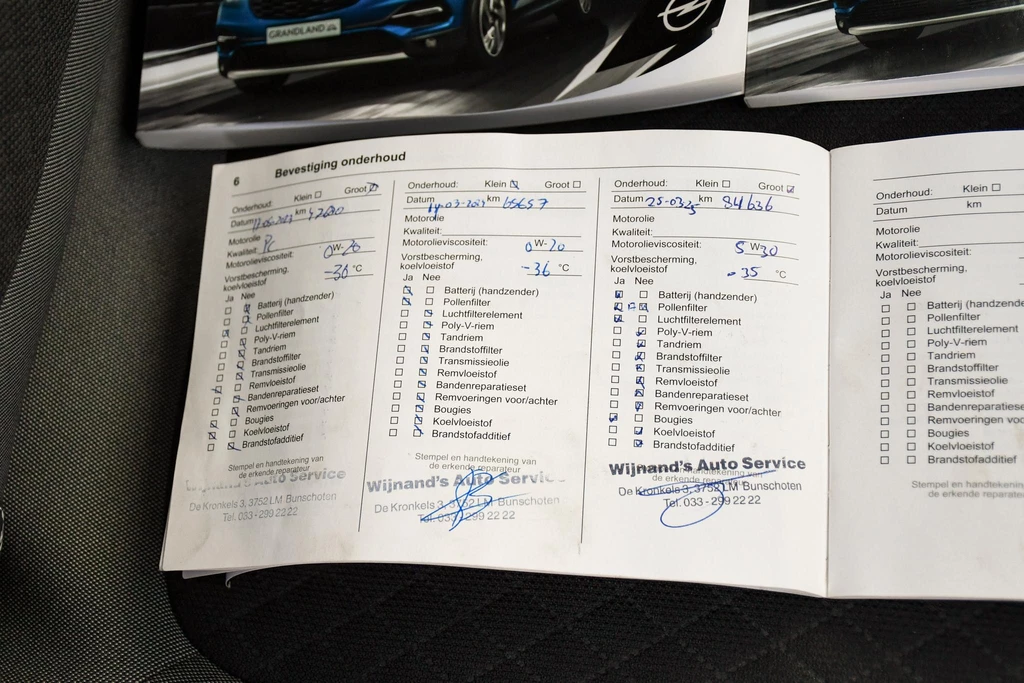 GRANDLAND
6 Bevestiging onderhoud
Onderhoud: Klein Groot
Datum km 42680
Motorolie
Kwaliteit:
Motorolieviscositeit: 0W-20
Vorstbescherming,
koelvloeistof -36 °C
Ja Nee
Batterij (handzender)
Pollenfilter
Luchtfilterelement
Poly-V-riem
Tandriem
Brandstoffilter
Transmissieolie
Remvloeistof
Bandenreparatieset
Remvoeringen voor/achter
Bougies
Koelvloeistof
Brandstofadditief
Stempel en handtekening van
de erkende reparateur
Wijnand's Auto Service
De Kronkels 3, 3752 LM Bunschoten
Tel. 033 - 299 22 22
Onderhoud: Klein Groot
Datum km 65657
Motorolie
Kwaliteit:
Motorolieviscositeit: 0W-20
Vorstbescherming,
koelvloeistof -36 °C
Ja Nee
Batterij (handzender)
Pollenfilter
Luchtfilterelement
Poly-V-riem
Tandriem
Brandstoffilter
Transmissieolie
Remvloeistof
Bandenreparatieset
Remvoeringen voor/achter
Bougies
Koelvloeistof
Brandstofadditief
Stempel en handtekening van
de erkende reparateur
Wijnand's Auto Service
De Kronkels 3, 3752 LM Bunschoten
Tel. 033 - 299 22 22
Onderhoud: Klein Groot
Datum km 84636
Motorolie
Kwaliteit:
Motorolieviscositeit: 5W30
Vorstbescherming,
koelvloeistof -35 °C
Ja Nee
Batterij (handzender)
Pollenfilter
Luchtfilterelement
Poly-V-riem
Tandriem
Brandstoffilter
Transmissieolie
Remvloeistof
Bandenreparatieset
Remvoeringen voor/achter
Bougies
Koelvloeistof
Brandstofadditief
Stempel en handtekening van
de erkende reparateur
Wijnand's Auto Service
De Kronkels 3, 3752 LM Bunschoten
Tel. 033 - 299 22 22
Onderhoud: Klein
Datum km
Motorolie
Kwaliteit:
Motorolieviscositeit:
Vorstbescherming,
koelvloeistof
Ja Nee
Batterij (handzende
Pollenfilter
Luchtfilterelement
Poly-V-riem
Tandriem
Brandstoffilter
Transmissieolie
Remvloeistof
Bandenreparatiese
Remvoeringen voo
Bougies
Koelvloeistof
Brandstofadditief
Stempel en handteken
de erkende reparate